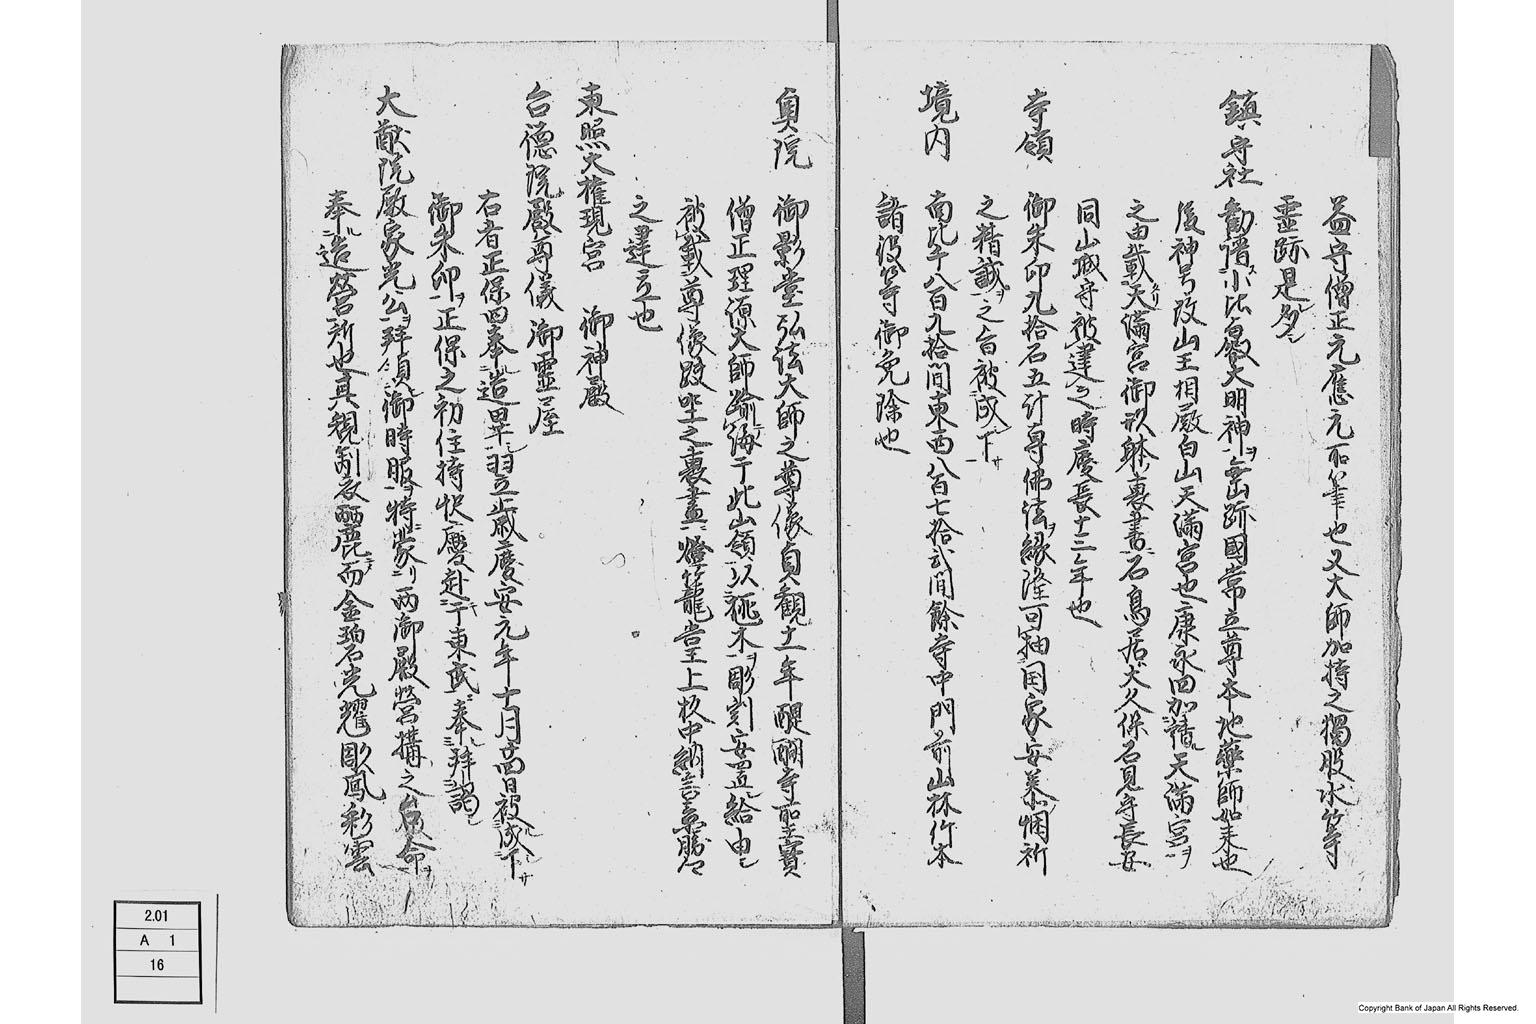 益守僧正元應元所筆也又大師加持之獨股水等
靈跡是多シ
鎮守社
勸請ス小比叡大明神ヲ垂跡國常立尊本地藥師如来也
後神号改山王相殿白山天滿宮也康永四加請天滿宮ヲ
之由載天滿宮御躰裏書ニ石鳥居大久保石見守長安
同山城守被建之時慶長十三年也
寺領
御朱印九拾石五斗専佛法ヲ縁隆可抽国家安慕悃祈
之精誠ヲ之旨被成下サ
境内
南北千八百九拾間東西八百七拾弐間餘寺中門前山林竹木
諸役等御免除也
奥院
御影堂弘法大師之尊像貞觀十一年醍醐寺聖寳
僧正理源大師踰海于此山領以桜木ヲ彫刻安置給由
被載尊像趺坐之裏畫ニ燈籠
上杦中納言景勝公
之建立也
東照大権現宮 御神殿
台德院殿尊儀 御靈屋
右者正保四奉造畢翌歳慶安元年十月
日被成下サ
御朱印ヲ正保之初住持快慶赴于東武ニ奉拜謁
大猷院殿家光公ヲ拜領御時服特蒙リ両御殿營構之台命ヲ
奉造營所也其規制衣麗而金碧光耀彫鳳彩雲
2.01
A 1
16
Copyright Bank of Japan All Rights Reserved.